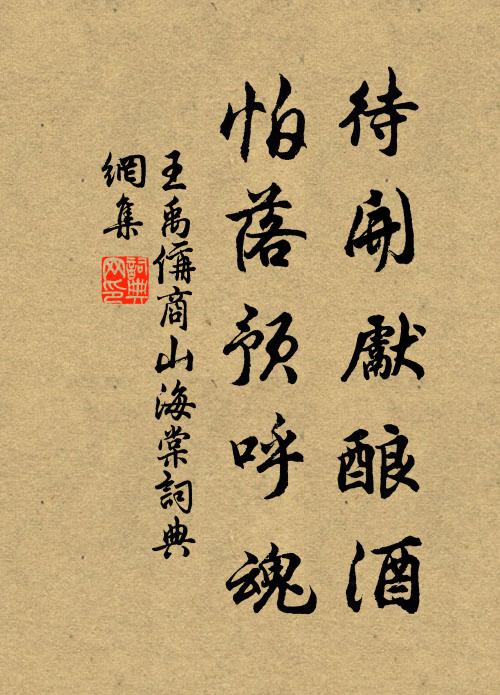 待開獻酿酒
怕落預呼魂
王禹偁商山海棠詞典
網集
詞典
网印